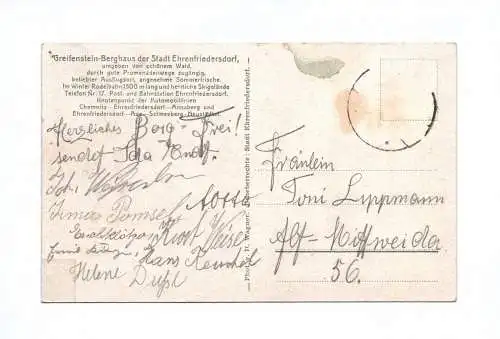 Greifenstein-Berghaus der Stadt Ehrenfriedersdorf,
umgeben von schönem Wald,
durch gute Promenadenwege zugängig,
beliebter Ausflugsort, angenehme Sommerfrische.
Im Winter Rodelbahn 1500 m lang und herrliche Skigelände
Telefon Nr. 17. Post- und Bahnstation Ehrenfriedersdorf.
Knotenpunkt der Automobillinien
Chemnitz - Ehrenfriedersdorf - Annaberg und
Ehrenfriedersdorf - Aue - Schneeberg - Neustädtel.
Herzliches Berg-Frei!
sendet Ida
Joh.
Irma Pomsel
Kurt Weise
Hans
Helene
Photogr. H. Wagner. Urheberrechte: Stadt Ehrenfriedersdorf.
Fräulein
Toni Lippmann
Alt-Mittweida
56.